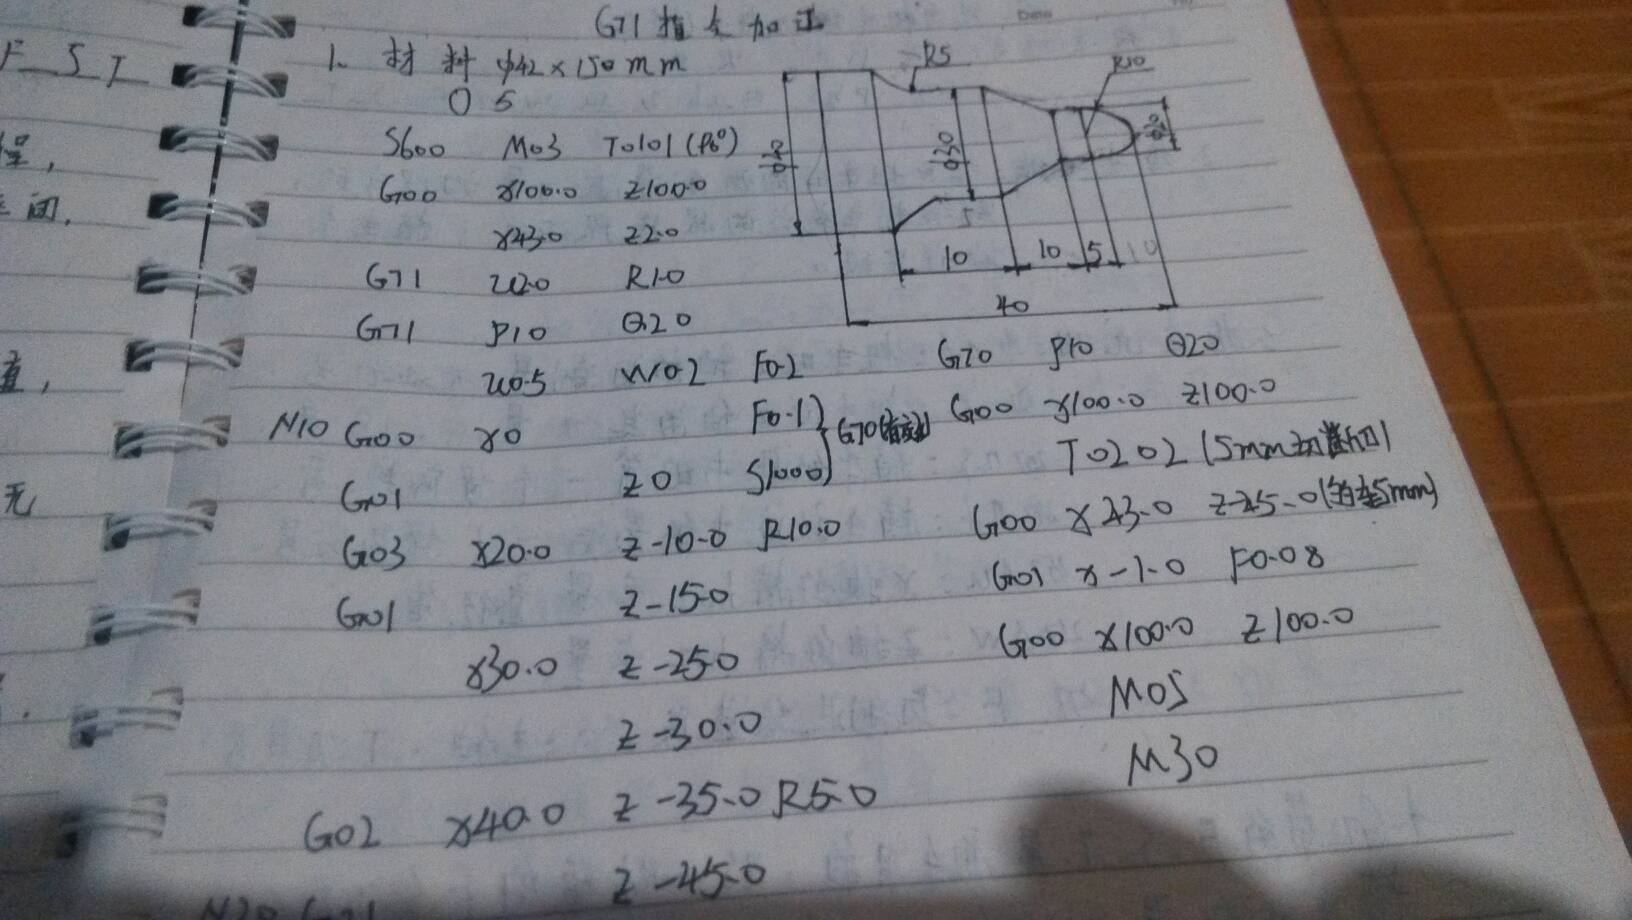 G71指令加工
F S T
1. 材料 φ42×150mm
O 5
R5
R10
S600 M03 T0101 (90°)
G00 X100.0 Z100.0
X43.0 Z2.0
G71 U2.0 R1.0
G71 P10 Q20
U0.5 W0.2 F0.2
N10 G00 X0 F0.1
G01 Z0 S1000
G70(精刻)
G03 X20.0 Z-10.0 R10.0
G01 Z-15.0
X30.0 Z-25.0
Z-30.0
G02 X40.0 Z-35.0 R5.0
N20 G01 Z-45.0
φ30
5
10
10
5
10
40
G70 P10 Q20
G00 X100.0 Z100.0
T0202 (5mm切断刀)
G00 X43.0 Z-45.0
G01 X-1.0 F0.08
G00 X100.0 Z100.0
M05
M30